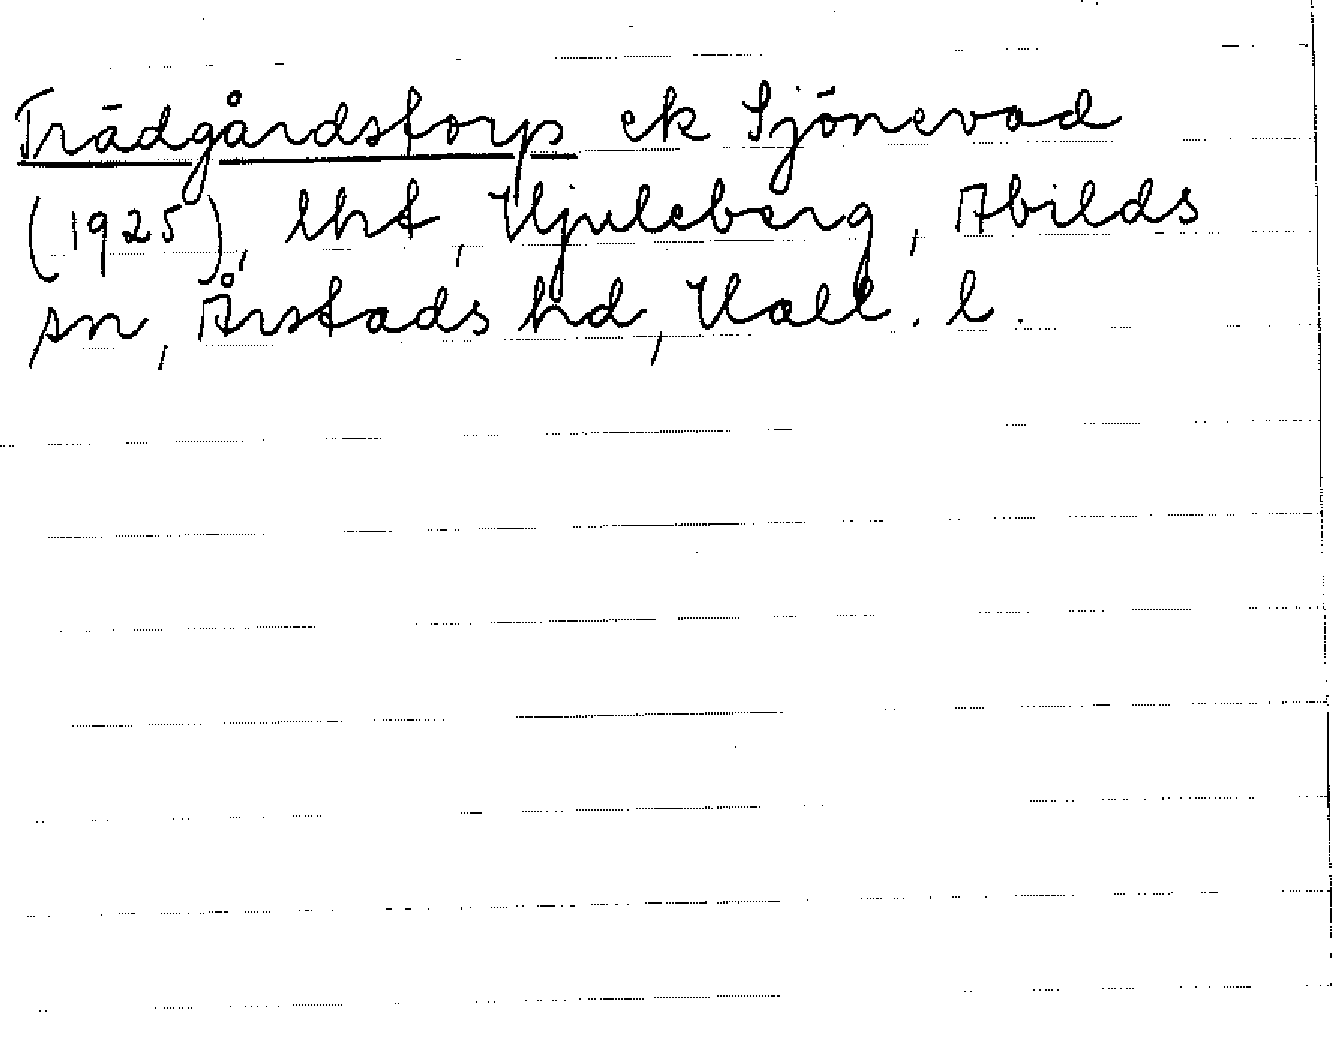 Trädgårdstorp ek Sjönevad
(1925), lht, Hjuleberg, Abilds
sn, Årstads hd, Hall. l.